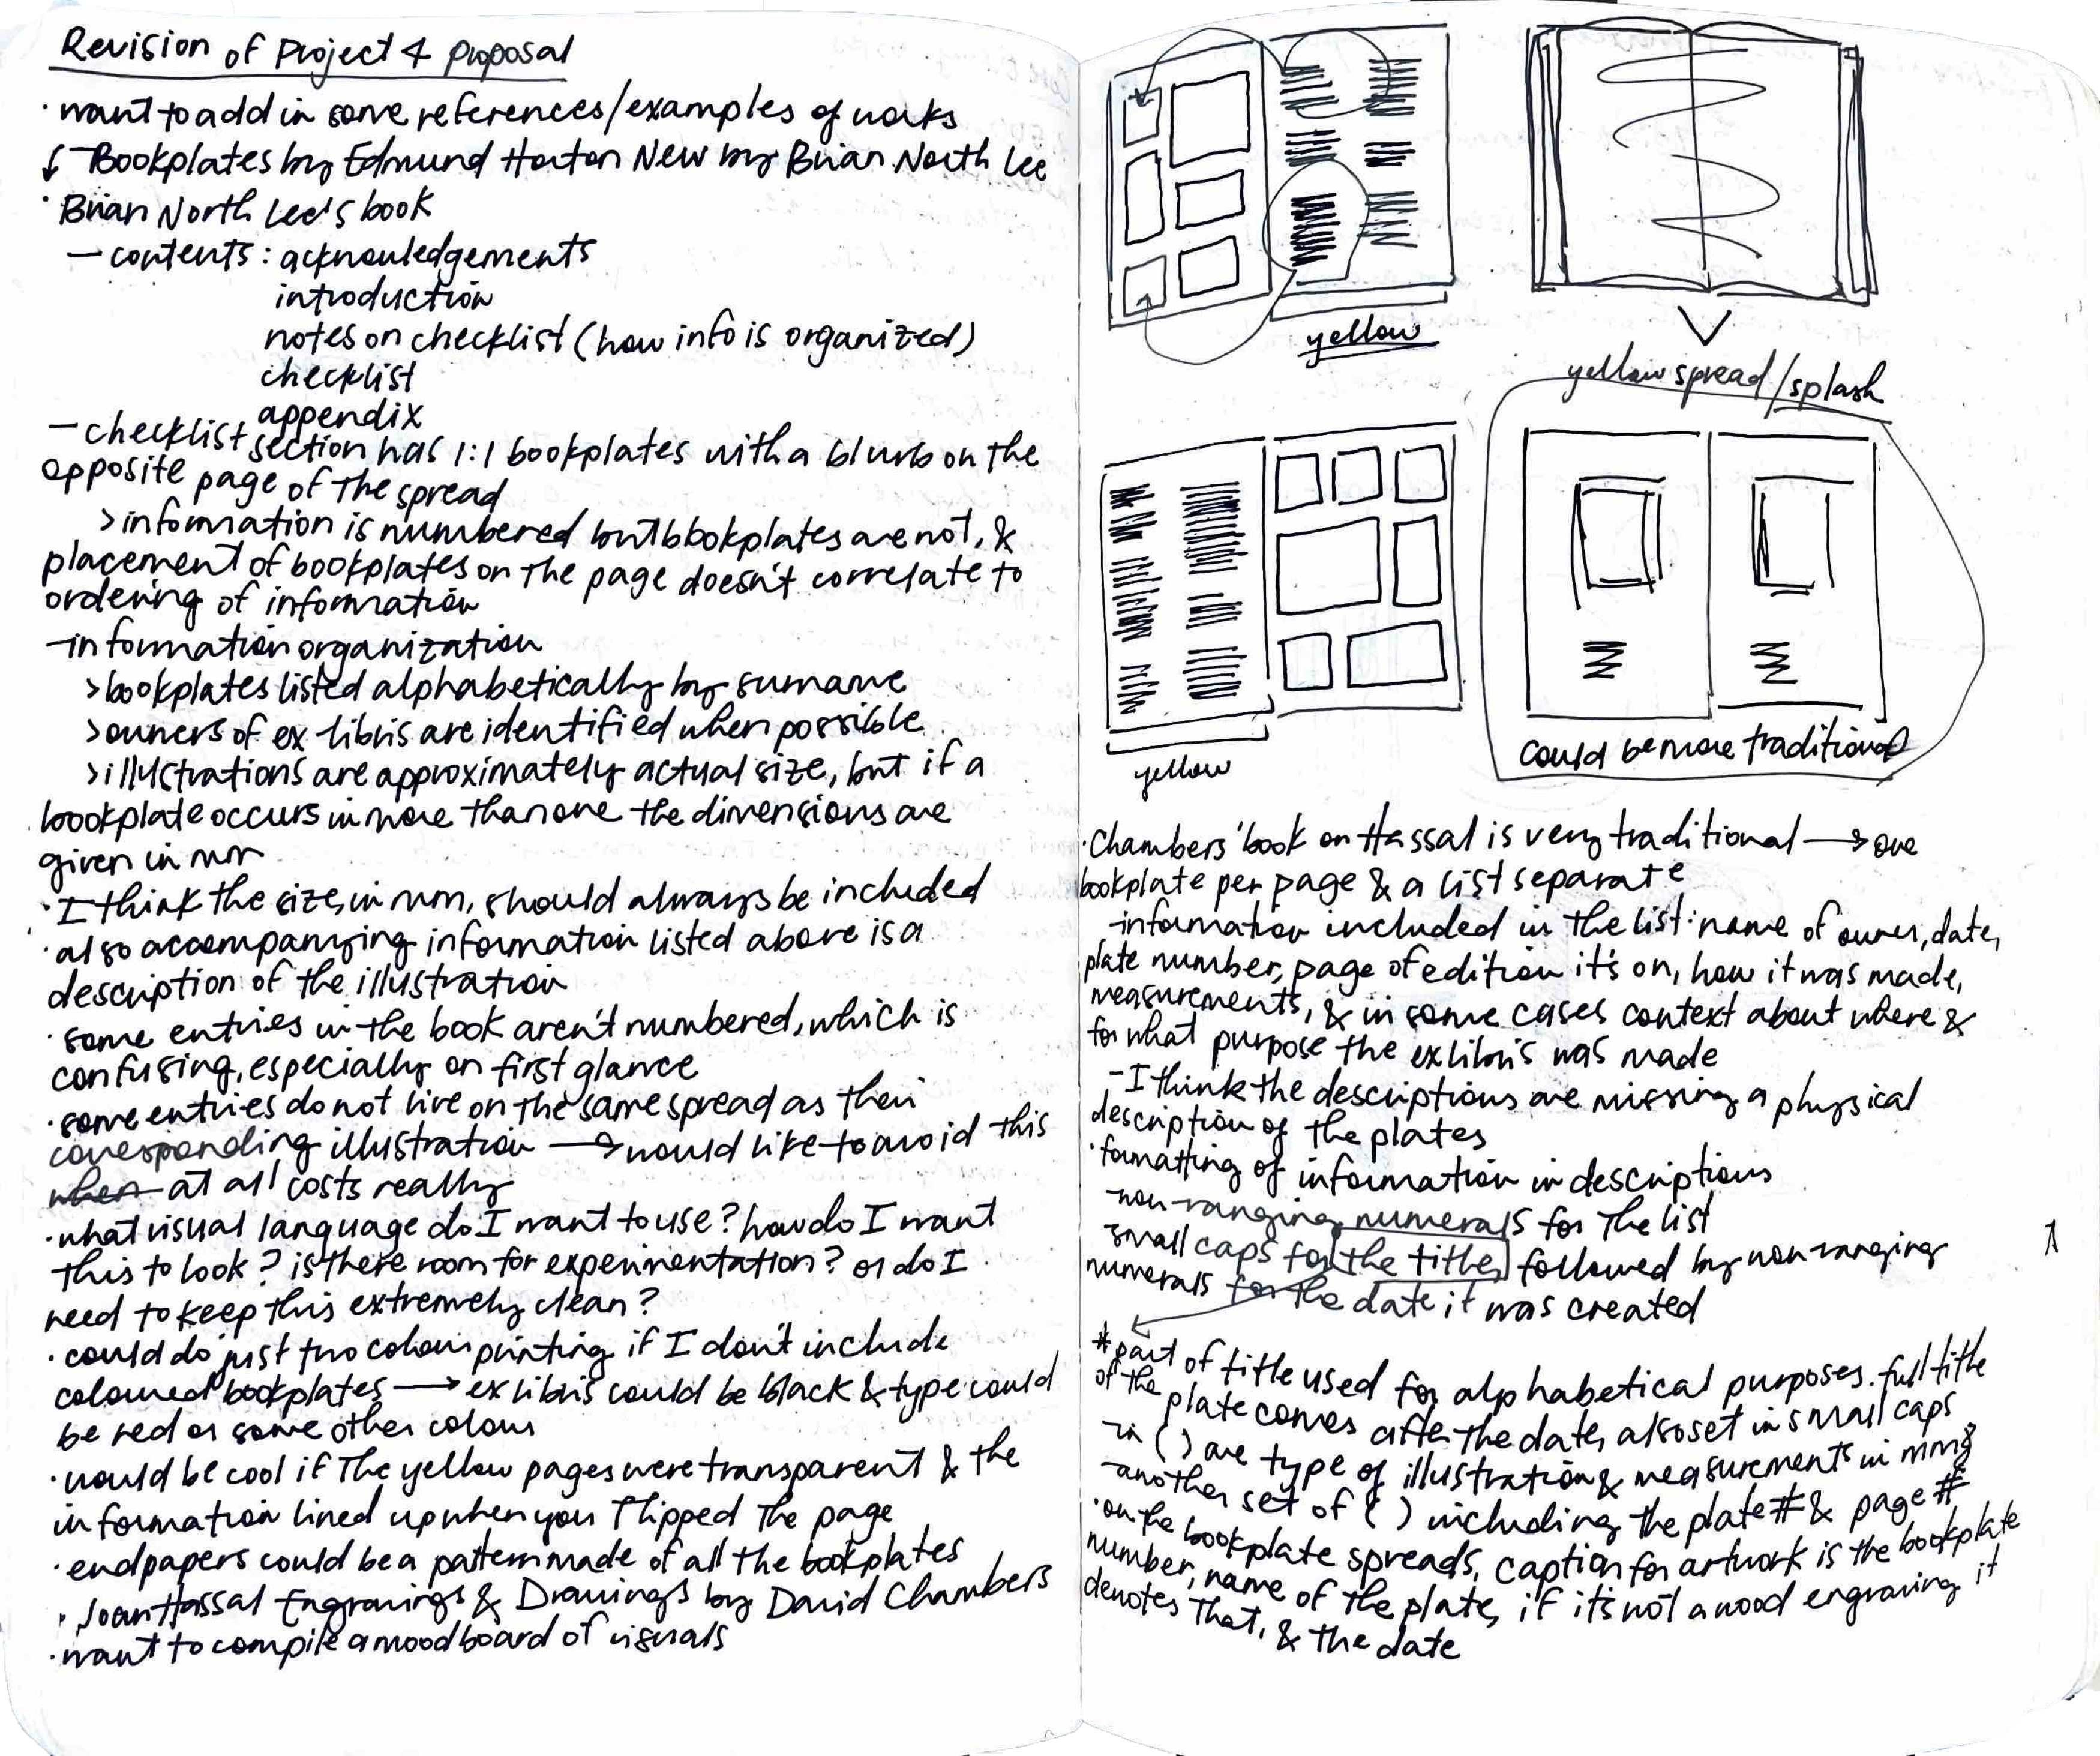 Revision of Project 4 proposal
· want to add in some references/examples of works
- Bookplates by Edmund Horton New by Brian North Lee
· Brian North Lee's book
- contents: acknowledgements
introduction
notes on checklist (how info is organized)
checklist
appendix
- checklist section has 1:1 bookplates with a blurb on the
opposite page of the spread
> information is numbered but bookplates are not, &
placement of bookplates on the page doesn't correlate to
ordering of information
- information organization
> bookplates listed alphabetically by surname
> owners of ex-libris are identified when possible
> illustrations are approximately actual size, but if a
bookplate occurs in more than one the dimensions are
given in mm
· I think the size, in mm, should always be included
· also accompanying information listed above is a
description of the illustration
· some entries in the book aren't numbered, which is
confusing, especially on first glance
· some entries do not live on the same spread as their
corresponding illustration → would like to avoid this
when at all costs really
· what visual language do I want to use? how do I want
this to look? is there room for experimentation? or do I
need to keep this extremely clean?
· could do just two colour printing if I don't include
coloured bookplates → ex libris could be black & type could
be red or some other colour
· would be cool if the yellow pages were transparent & the
information lined up when you flipped the page
· endpapers could be a pattern made of all the bookplates
· Joan Hassal Engravings & Drawings by David Chambers
· want to compile a moodboard of visuals
yellow
yellow spread/splash
yellow
could be more traditional
· Chambers' book on Hassal is very traditional → one
bookplate per page & a list separate
- information included in the list: name of owner, date,
plate number, page of edition it's on, how it was made,
measurements, & in some cases context about where &
for what purpose the ex libris was made
- I think the descriptions are missing a physical
description of the plates
· formatting of information in descriptions
- non-ranging numerals for the list
- small caps for the title followed by non-ranging
numerals for the date it was created
* part of title used for alphabetical purposes. full title
of the plate comes after the date, also set in small caps
- in ( ) are type of illustration & measurements in mmg
- another set of ( ) including the plate # & page #
· on the bookplate spreads, caption for artwork is the bookplate
number, name of the plate, if it's not a wood engraving it
denotes that, & the date